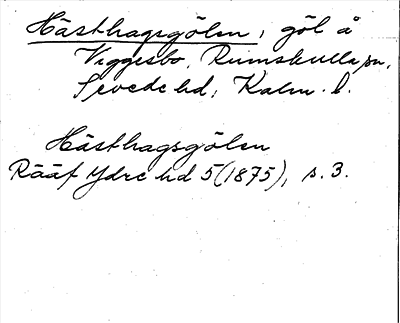 Hästhagsgölen, göl å
Viggesbo, Rumskulla sn,
Sevede hd, Kalm. l.
Hästhagsgölen
Rääf Ydre hd 5(1875), s. 3.